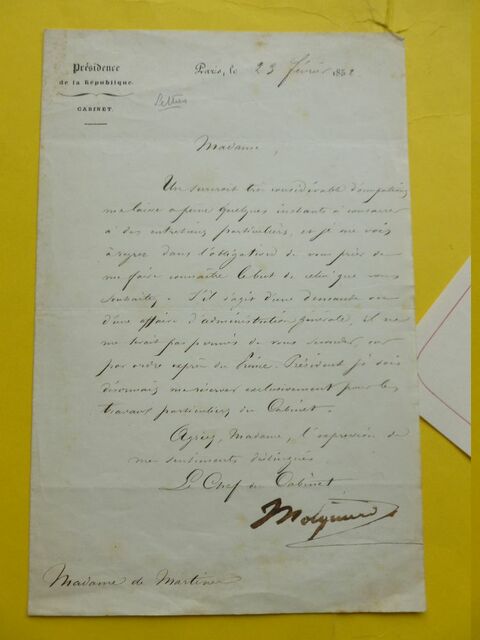 Présidence
de la République.
CABINET.
Paris, le 23 février 1852
Madame,
Un surcroît très considérable d'occupations
me laisse à peine quelques instants à consacrer
à des entretiens particuliers, et je me vois
à regret dans l'obligation de vous prier de
me faire connaître le but de celui que vous
souhaitez. S'il s'agit d'une demande ou
d'une affaire d'administration générale, il ne
me serait pas permis de vous seconder, car
par ordre exprès du Prince-Président je dois
désormais me réserver exclusivement pour les
travaux particuliers du Cabinet.
Agréez, Madame, l'expression de
mes sentiments distingués
Le Chef du Cabinet
Madame de